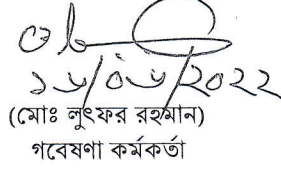 ১৬/০৬/2022
(মোঃ লুৎফর রহমান)
গবেষণা কর্মকর্তা